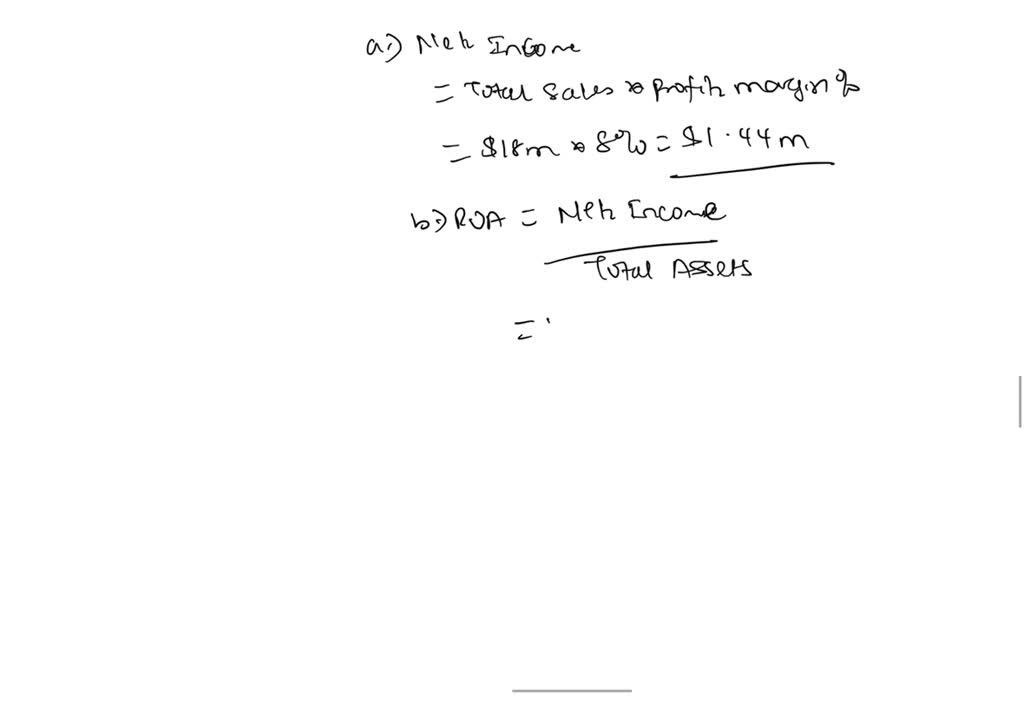 a.) Net Income
= Total Sales * Profit margin %
= $18m * 8% = $1.44m
b.) ROA = Net Income
Total Assets
=